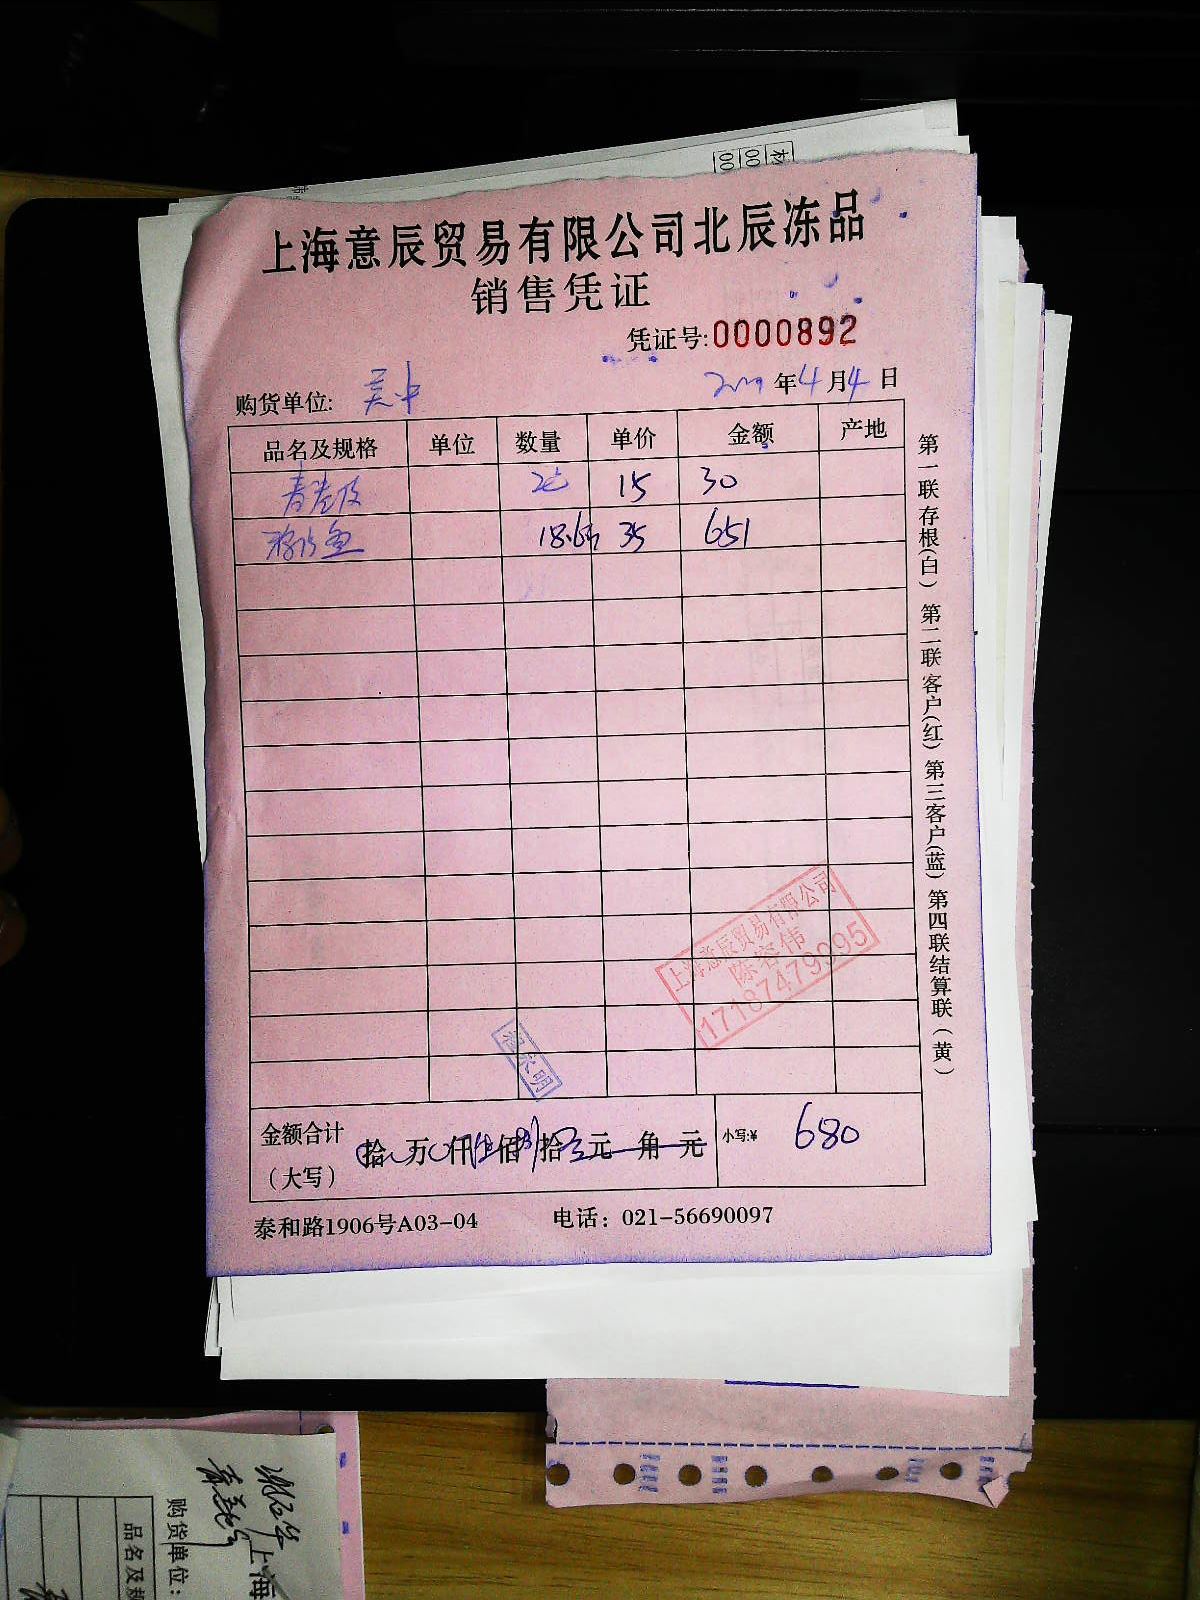 上海意辰贸易有限公司北辰冻品
销售凭证
凭证号:0000892
购货单位: 吴中
年4月4日
品名及规格 单位 数量 单价 金额 产地
15 30
鱼 18.6 35 651
上海意辰贸易有限公司
陈容伟
17187479095
永明
金额合计
(大写)
拾 万 仟 佰 拾 元 角 元
小写:¥ 680
泰和路1906号A03-04 电话: 021-56690097
第一联存根(白) 第二联客户(红) 第三客户(蓝) 第四联结算联(黄)
购货单位:
上海
品名及规